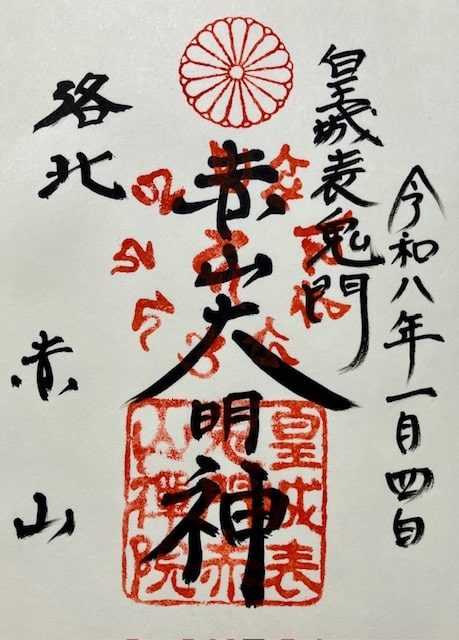 令和八年一月四日
皇城表鬼門
赤山大明神
洛北
赤山
皇城表
鬼門赤
山禅院